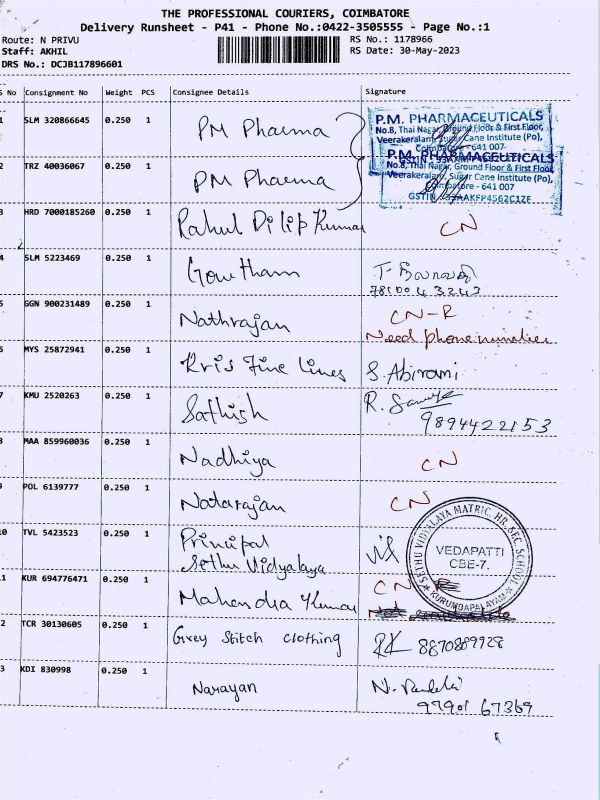 THE PROFESSIONAL COURIERS, COIMBATORE
Delivery Runsheet - P41 - Phone No.:0422-3505555 - Page No.:1
Route: N PRIVU
RS No.: 1178966
Staff: AKHIL
RS Date: 30-May-2023
DRS No.: DCJB117896601
S No Consignment No Weight PCS Consignee Details Signature
1 SLM 320866645 0.250 1 PM Pharma
P.M. PHARMACEUTICALS
No.8, Thai Nagar, Ground Floor & First Floor,
Veerakeralam, Sugar Cane Institute (Po),
Coimbatore - 641 007
2 TRZ 40036067 0.250 1 PM Pharma
P.M. PHARMACEUTICALS
No.8, Thai Nagar, Ground Floor & First Floor,
Veerakeralam, Sugar Cane Institute (Po),
Coimbatore - 641 007
GSTIN
3 HRD 7000185260 0.250 1 Rahul Dilip Kumar CN
4 SLM 5223469 0.250 1 Goutham
7810043243
5 GGN 900231489 0.250 1 Nathrajan CN-R
Need phone number
6 MYS 25872941 0.250 1 Kris Fine Lines S. Abirami
7 KMU 2520263 0.250 1 Sathish R.
9894422153
8 MAA 859960036 0.250 1 Nadhiya CN
9 POL 6139777 0.250 1 Natarajan CN
10 TVL 5423523 0.250 1 Principal
Sethu Vidyalaya
SETHU VIDYALAYA MATRIC. HR. SEC. SCHOOL
VEDAPATTI
CBE-7.
KURUMBAPALAYAM
11 KUR 694776471 0.250 1 Mahendra Kumar CN
12 TCR 30130605 0.250 1 Grey Stitch clothing RK 8870889928
13 KDI 830998 0.250 1 Narayan N.
97901 67369